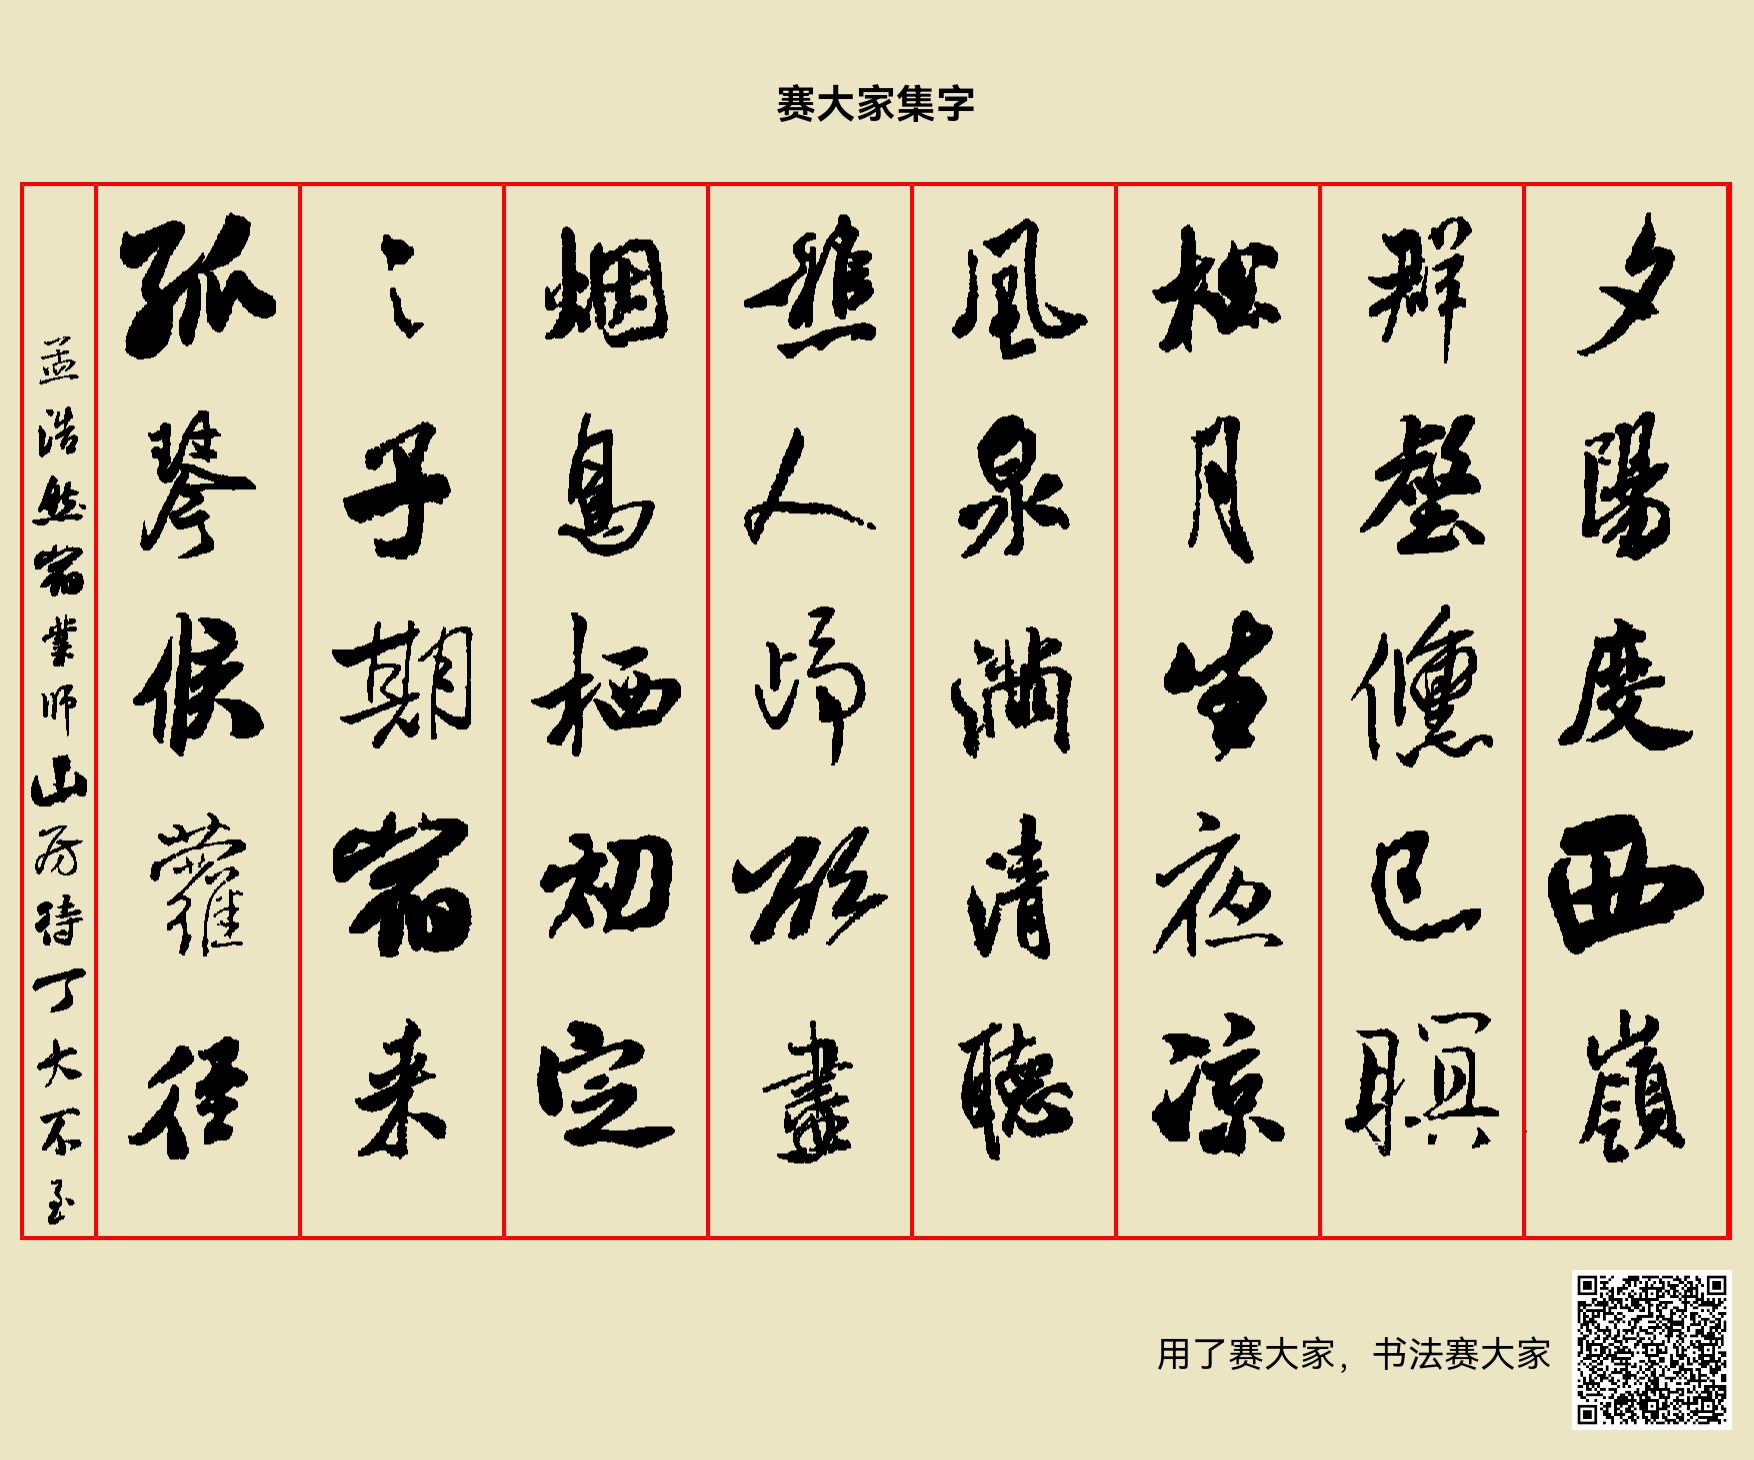 赛大家集字
夕陽度西嶺
群壑儵已暝
松月生夜凉
風泉滿清聽
樵人歸欲盡
烟鳥栖初定
之子期宿来
孤琴候蘿径
孟浩然宿業师山房待丁大不至
用了赛大家，书法赛大家